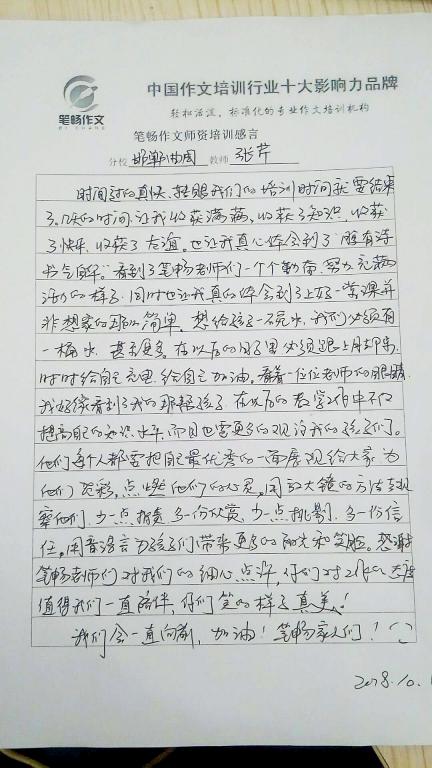 中国作文培训行业十大影响力品牌
笔畅作文
BI CHANG
轻松活泼、标准化的专业作文培训机构
笔畅作文师资培训感言
分校 邯郸曲周 教师 张芹
时间过的真快,转眼我们的培训时间就要结束
了,几天的时间,让我收获满满,收获了知识,收获
了快乐,收获了友谊。也让我真心体会到了腹有诗
书气自华。看到了笔畅老师们一个个勤奋,努力,充满
活力的样子,同时也让我真的体会到了上好一堂课并
非想象的那么简单。想给孩子一碗水,我们必须有
一桶水,甚至更多。在以后的日子里必须跟上脚步,
时时给自己充电,给自己加油。看着一位位老师的眼睛
我好像看到了我的那帮孩子,在以后的教学工作中不仅
提高自己的知识水平,而且也需更多的观注我的孩子们。
他们每个人都需把自己最优秀的一面展现给大家,为
他们喝彩,点燃他们的心灵,用放大镜的方法去观
察他们,少一点指责,多一份欣赏,少一点挑剔,多一份信
任,用香语言为孩子们带来更多的阳光和笑脸。感谢
笔畅老师们对我们的细心点评,你们对工作的态度
值得我们一直陪伴,你们笑的样子真美!
我们会一直向前,加油!笔畅家人们!
2018.10.